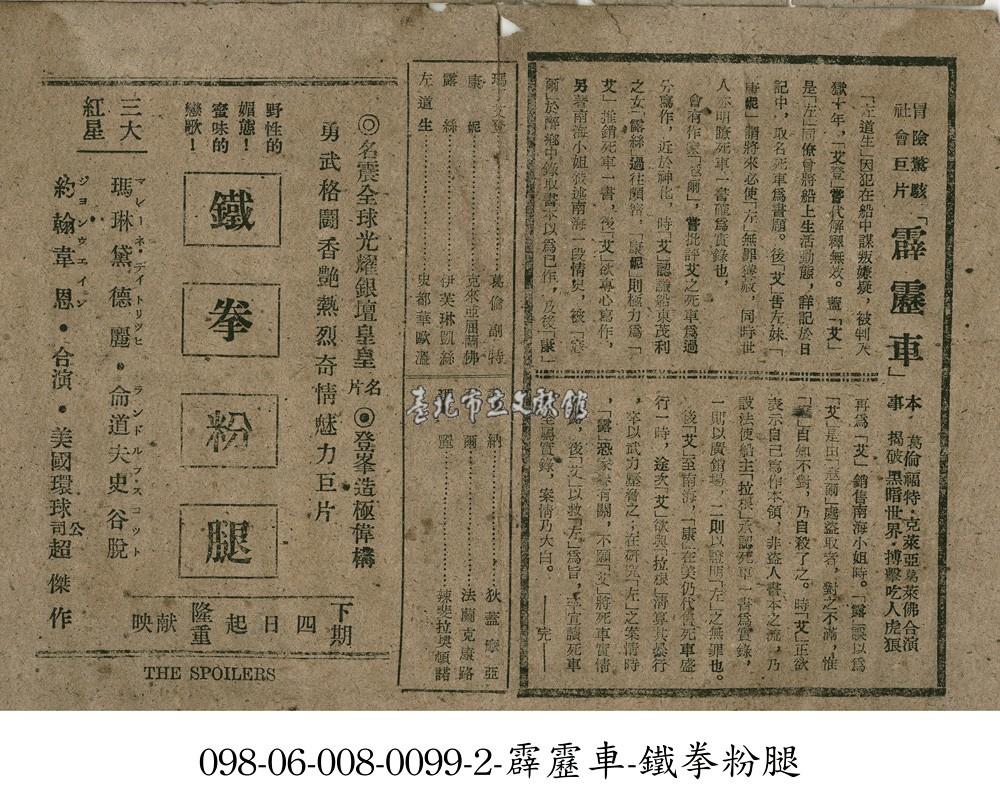 冒險驚駭
社會巨片
「霹靂車」
本事
葛倫福特・克萊亞葛萊佛合演
揭破黑暗世界・搏擊吃人虎狼
「左道生」因犯在船中謀叛嫌疑，被判入
獄十年，「艾登」嘗代解釋無效。藍「艾」
是「左」同僚曾將船上生活動態，詳記於日
記中，取名死車爲書題。後「艾」告左妹「
康妮」謂將來必使「左」無罪獲赦，同時世
人亦明瞭死車一書確爲實錄也，
會有作家「寇爾」，嘗批評艾之死車爲過
分寫作，近於神化，時「艾」認識船東茂利
之女「露絲」過往頗密，「康妮」則極力爲「
艾」推銷死車一書，後「艾」欲專心寫作，
另著南海小姐敍述南海一段情史，被「寇
爾」於醉鄉中錄取書本以爲己作，及後「康」
再爲「艾」銷售南海小姐時。「露」誤以爲
「艾」是由「寇爾」處盜取者，對之不滿，惟
「寇」自知不對，乃自殺了之。時「艾」正欲
表示自己寫作本領，非盜人書本之流，乃
設法使船主「拉根」承認死車一書爲實錄，
一則以廣銷場，二則以證明「左」之無罪也。
後「艾」至南海，「康」在美仍代售死車盛
行一時，途次「艾」欲與「拉根」清算其暴行
，卒以武力壓脅之；在研究「左」之案情時
，「露」恐家人有關，不願「艾」將死車實情
露，後「艾」以救「左」爲旨，卒宣讀死車
全屬實錄，案情乃大白。——完——
瑪艾登……葛倫副特
康妮……克來亞屈蘭佛
露絲……伊芙琳凱絲
左道生……史都華歐溫
納……狄蓋嶽亞
爾……法蘭克康路
羅……辣斐拉奧頓諾
◎名震全球光耀銀壇皇皇名片◎登峯造極偉構
勇武格鬪香艶熱烈奇情魅力巨片
野性的
媚態！
蜜味的
戀歌！
鐵拳粉腿
下期
四日起
隆重
獻映
三大
紅星
瑪琳黛德麗・侖道夫史谷脫
マレーネ・デイトリツヒ ランドルフ・スコツト
約翰韋恩・合演・美國環球公司超傑作
ジヨンウエイン
THE SPOILERS
臺北市立文獻館
098-06-008-0099-2-霹靂車-鐵拳粉腿